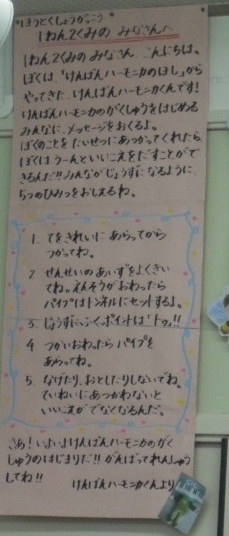 ほうとくしょうがっこう
1ねん2くみの みなさんへ
1ねん2くみの みなさん、こんにちは。
ぼくは「けんばんハーモニカのほし」から
やってきた、けんばんハーモニカくんです!
けんばんハーモニカのがくしゅうをはじめる
みんなに、メッセージをおくるよ。
ぼくのことを たいせつにあつかってくれたら
ぼくは うーんといいこえをだすことがで
きるんだ!!みんながじょうずになるように、
5つのひみつをおしえるね。
1. てをきれいに あらってから
つかってね。
2. せんせいのあいずをよくきい
てね。えんそうがおわったら
パイプはトンネルにセットするよ。
3. じょうずにふくポイントは「トゥ」!!
4. つかいおわったら パイプを
あらってね。
5. なげたり、おとしたりしないでね。
ていねいにあつかわないと
いいこえがでなくなるんだ。
さあ!いよいよけんばんハーモニカのがく
しゅうのはじまりだ!!がんばってれんしゅう
してね!!
けんばんハーモニカくんより